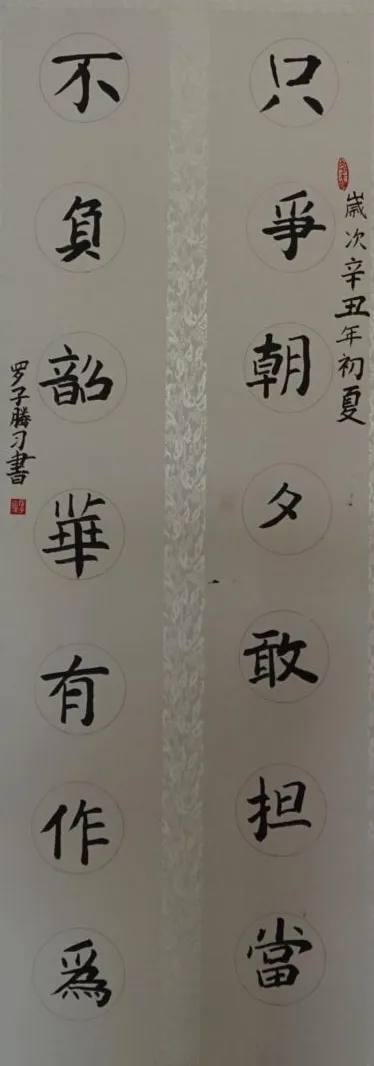 歲次辛丑年初夏
只爭朝夕敢担當
不負韶華有作爲
罗子勝习書